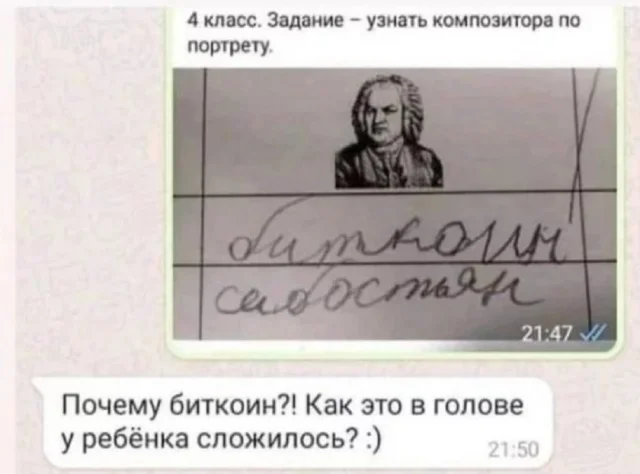 4 класс. Задание – узнать композитора по
портрету.
биткоин
себостьян
21:47
Почему биткоин?! Как это в голове
у ребёнка сложилось? :)
21:50